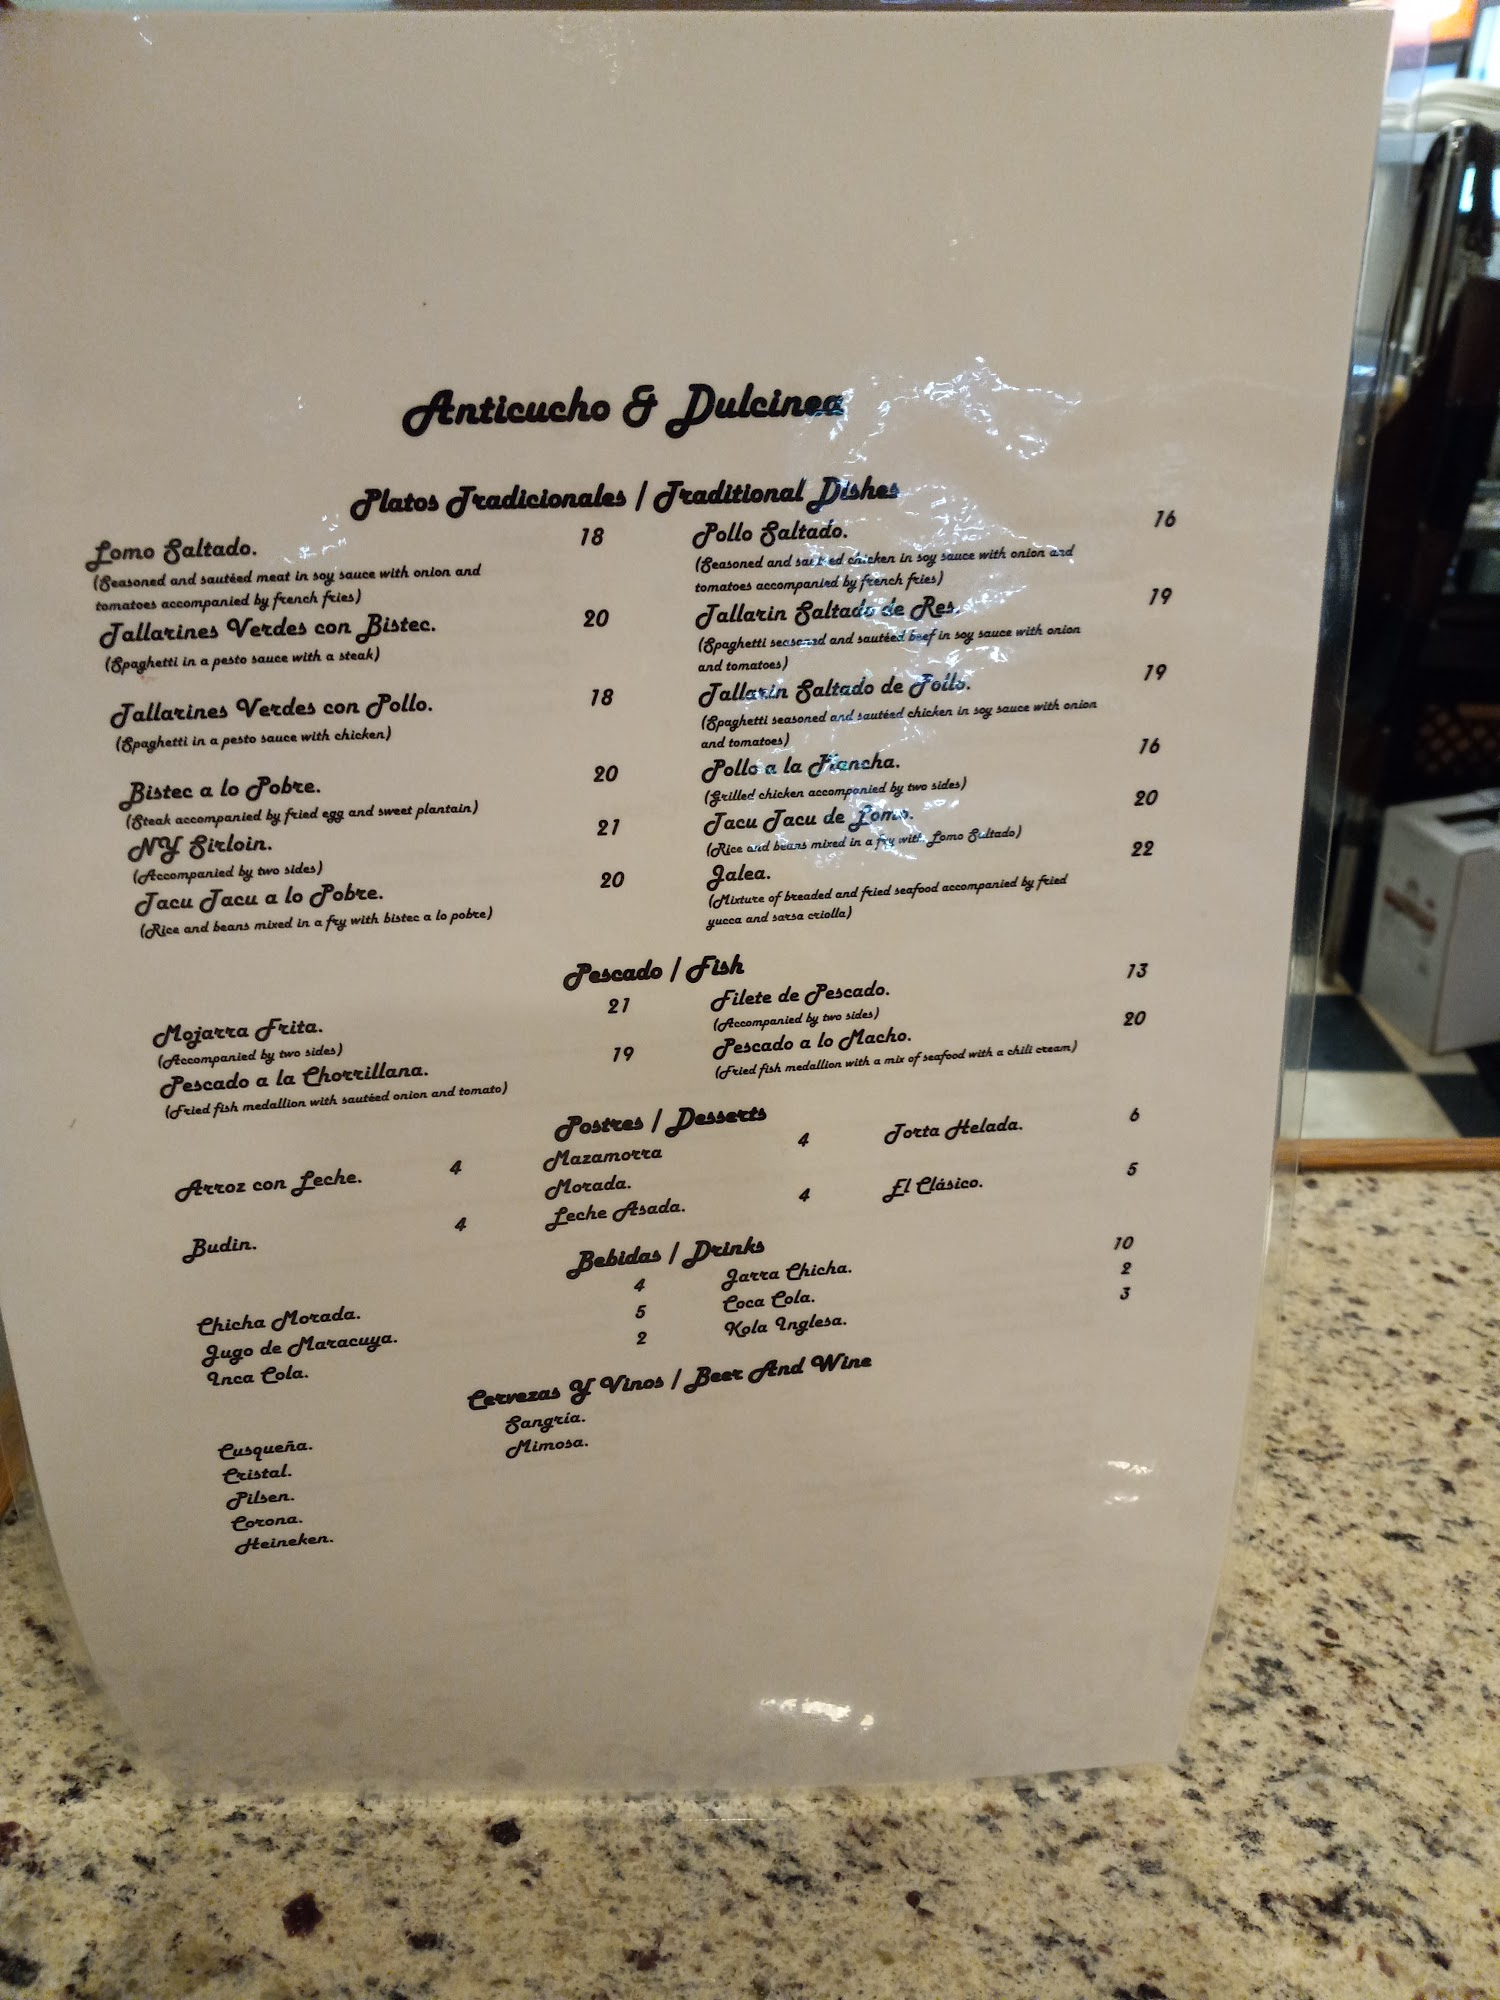 Anticucho & Dulcinea
Platos Tradicionales / Traditional Dishes
Lomo Saltado. 18
(Seasoned and sautéed meat in soy sauce with onion and
tomatoes accompanied by french fries)
Tallarines Verdes con Bistec. 20
(Spaghetti in a pesto sauce with a steak)
Tallarines Verdes con Pollo. 18
(Spaghetti in a pesto sauce with chicken)
Bistec a lo Pobre. 20
(Steak accompanied by fried egg and sweet plantain)
NY Sirloin. 21
(Accompanied by two sides)
Tacu Tacu a lo Pobre. 20
(Rice and beans mixed in a fry with bistec a lo pobre)
Pollo Saltado. 16
(Seasoned and sautéed chicken in soy sauce with onion and
tomatoes accompanied by french fries)
Tallarin Saltado de Res. 19
(Spaghetti seasoned and sautéed beef in soy sauce with onion
and tomatoes)
Tallarin Saltado de Pollo. 19
(Spaghetti seasoned and sautéed chicken in soy sauce with onion
and tomatoes)
Pollo a la Plancha. 16
(Grilled chicken accompanied by two sides)
Tacu Tacu de Lomo. 20
(Rice and beans mixed in a fry with Lomo Saltado)
Jalea. 22
(Mixture of breaded and fried seafood accompanied by fried
yucca and sarsa criolla)
Pescado / Fish
Mojarra Frita. 21
(Accompanied by two sides)
Pescado a la Chorrillana. 19
(Fried fish medallion with sautéed onion and tomato)
Filete de Pescado. 13
(Accompanied by two sides)
Pescado a lo Macho. 20
(Fried fish medallion with a mix of seafood with a chili cream)
Postres / Desserts
Arroz con Leche. 4
Budin. 4
Mazamorra 4
Morada.
Leche Asada. 4
Torta Helada. 6
El Clásico. 5
Bebidas / Drinks
Chicha Morada. 4
Jugo de Maracuya. 5
Inca Cola. 2
Jarra Chicha. 10
Coca Cola. 2
Kola Inglesa. 3
Cervezas Y Vinos / Beer And Wine
Cusqueña.
Cristal.
Pilsen.
Corona.
Heineken.
Sangría.
Mimosa.